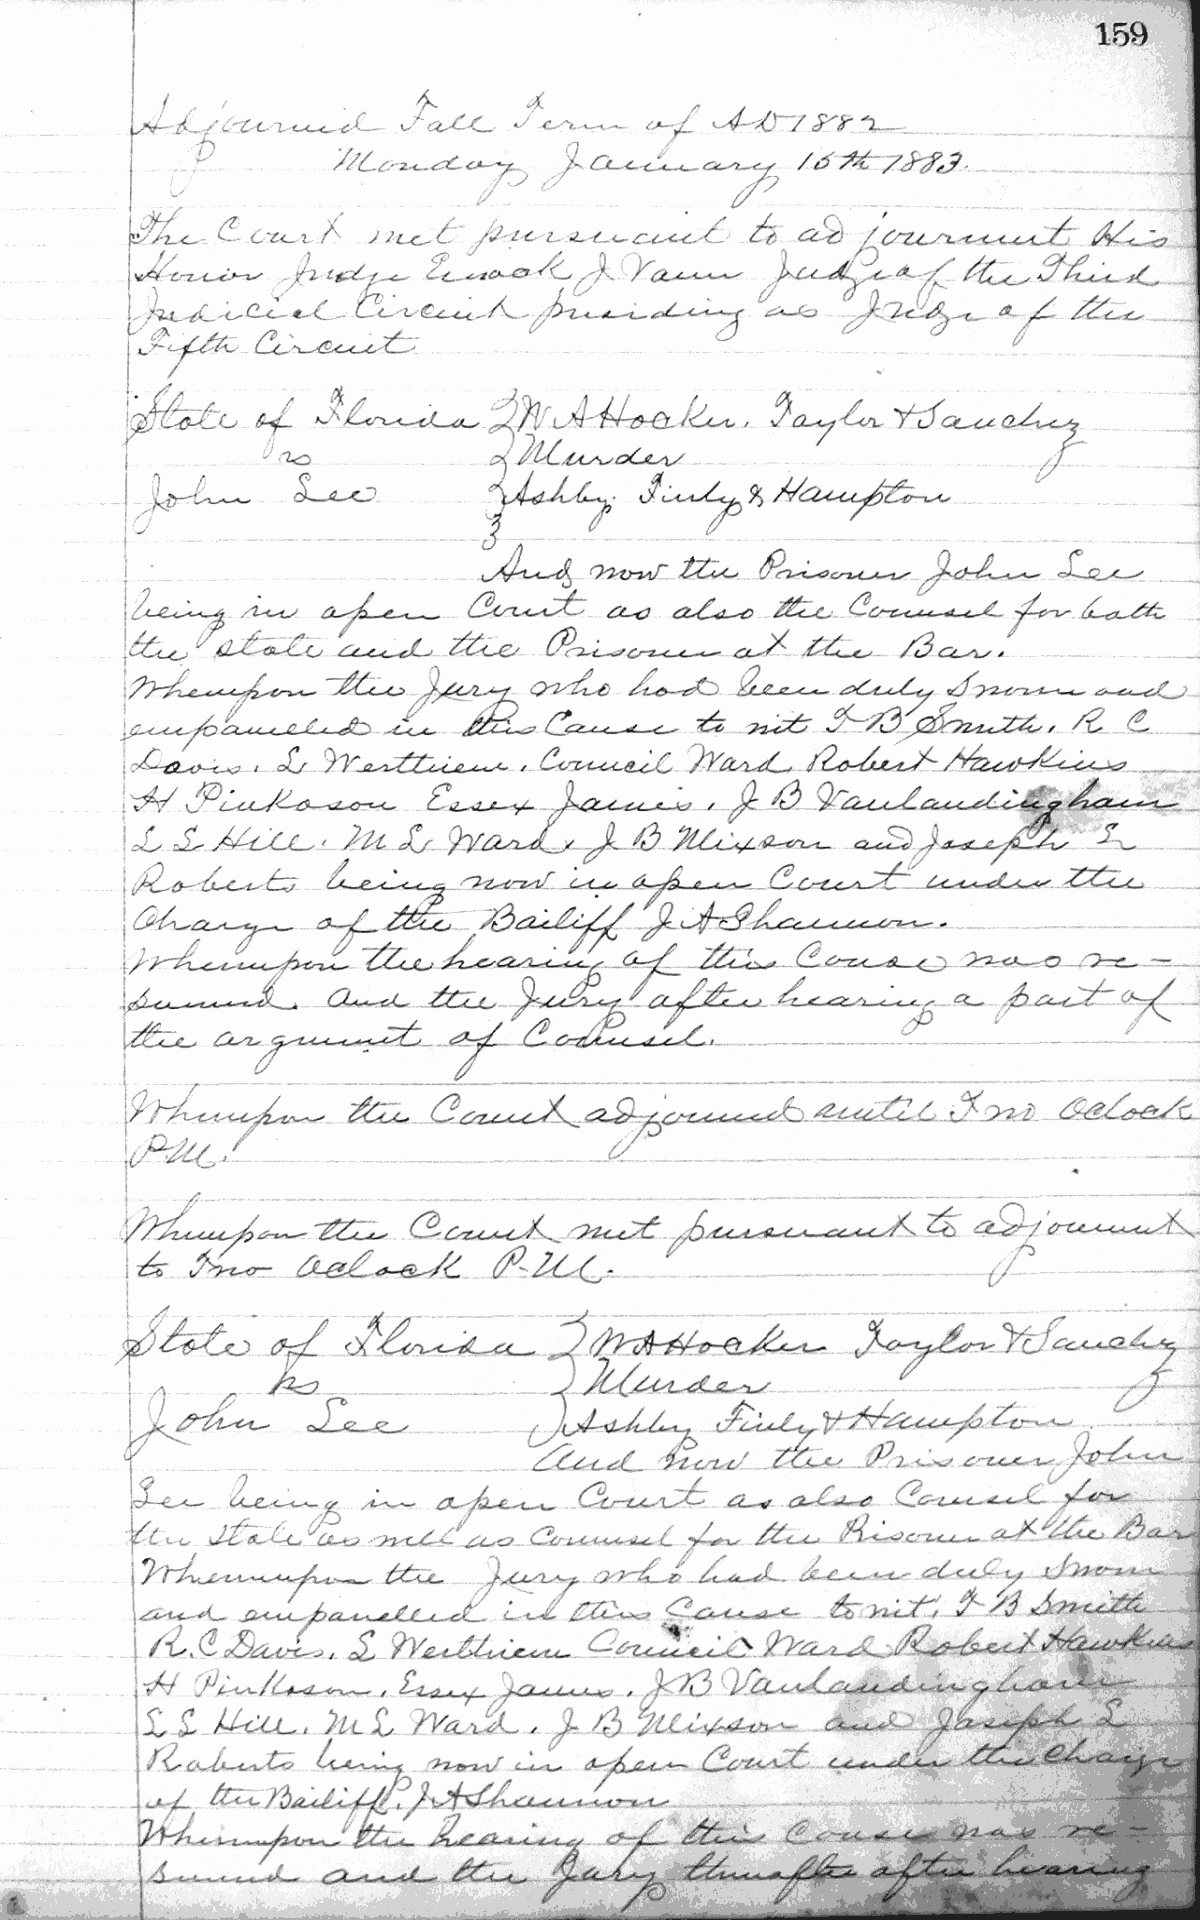 159
Adjourned Fall Term of AD 1882
Monday January 15th 1883.
The Court met pursuant to adjournment His
Honor Judge Enock J Vann Judge of the Third
Judicial Circuit presiding as Judge of the
Fifth Circuit
State of Florida } W A Hocker. Taylor & Sanchez
vs } Murder
John Lee } Ashby. Finly & Hampton
And now the Prisoner John Lee
being in open Court as also the Counsel for both
the state and the Prisoner at the Bar.
Whereupon the Jury who had been duly Sworn and
empanelled in this Cause to wit T B Smith. R C
Davis. L Wertheim. Council Ward Robert Hawkins
H Pinkoson Essex James. J B Vanlandingham
L L Hill. M L Ward. J B Mixson and Joseph L
Roberts being now in open Court under the
Charge of the Bailiff J A Shannon.
Whereupon the hearing of this Cause was re-
sumed. And the Jury after hearing a part of
the argument of Counsel.
Whereupon the Court adjourned until Two Oclock
P.M.
Whereupon the Court met pursuant to adjournment
to Two Oclock P.M.
State of Florida } W A Hocker Taylor & Sanchez
vs } Murder
John Lee } Ashby Finly & Hampton
And now the Prisoner John
Lee being in open Court as also Counsel for
the State as well as Counsel for the Prisoner at the Bar
Whereupon the Jury who had been duly Sworn
and empanelled in this Cause to wit. T B Smith
R. C Davis. L Wertheim Council Ward Robert Hawkins
H Pinkoson. Essex James. J B Vanlandingham
L L Hill. M L Ward. J B Mixson and Joseph L
Roberts being now in open Court under the Charge
of the Bailiff. J A Shannon
Whereupon the hearing of this Cause was re-
sumed and the Jury thereafter after hearing